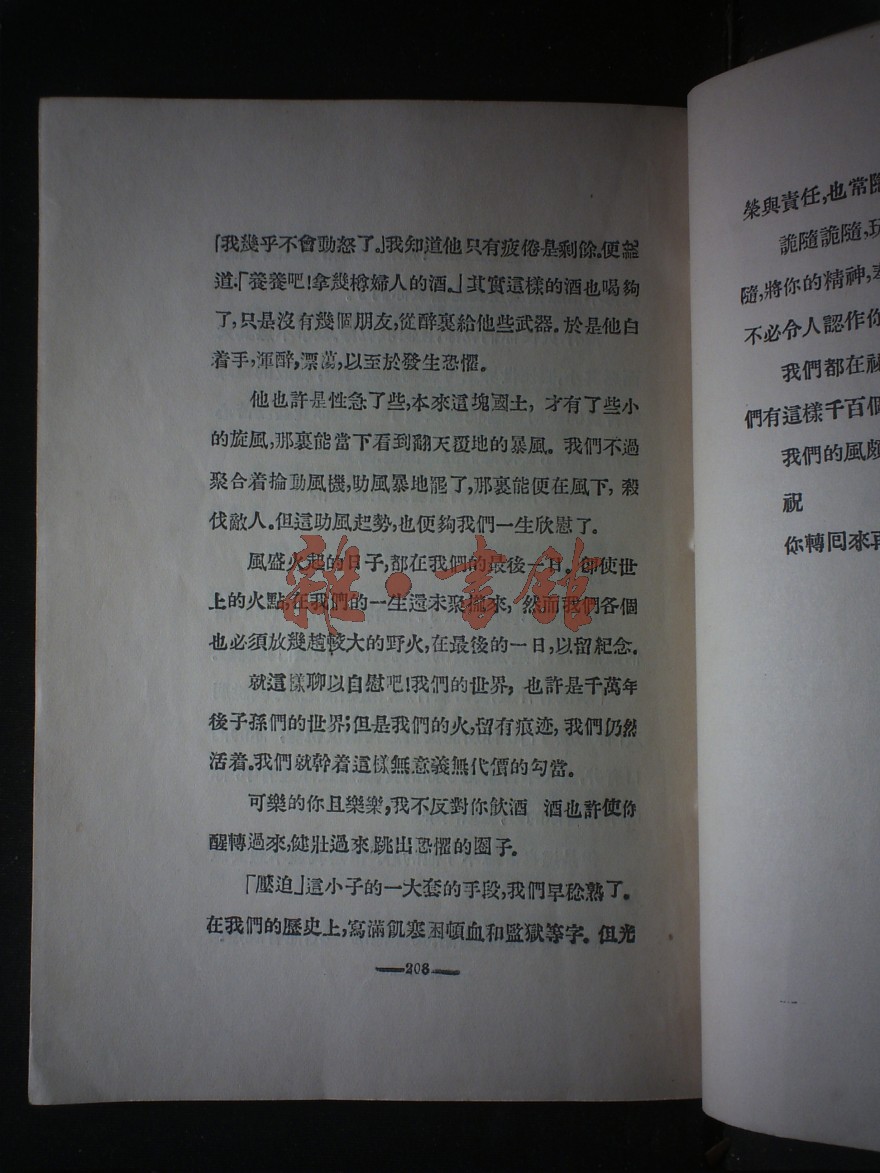 「我幾乎不會動怒了。」我知道他只有疲倦是剩餘。便
道.「養養吧!拿幾樽婦人的酒。」其實這樣的酒也喝夠
了,只是沒有幾個朋友,從醉裏給他些武器。於是他白
着手,渾醉,漂蕩,以至於發生恐懼。
他也許是性急了些,本來這塊國土, 才有了些小
的旋風,那裏能當下看到翻天覆地的暴風。我們不過
聚合着掄動風機,助風暴地罷了,那裏能便在風下, 殺
伐敵人。但這助風起勢,也便夠我們一生欣慰了。
風盛火起的日子,都在我們的最後一日。即使世
上的火點,在我們的一生還未聚攏來, 然而我們各個
也必須放幾趟較大的野火,在最後的一日,以留紀念.
就這樣聊以自慰吧!我們的世界, 也許是千萬年
後子孫們的世界;但是我們的火,留有痕迹, 我們仍然
活着.我們就幹着這樣無意義無代價的勾當。
可樂的你且樂樂,我不反對你飲酒 酒也許使你
醒轉過來,健壯過來 跳出恐懼的圈子。
「壓迫」這小子的一大套的手段,我們早稔熟了。
在我們的歷史上,寫滿飢寒困頓血和監獄等字。但光
208
榮與責任,也常
詭隨詭隨,玩
隨,將你的精神,
不必令人認作你
我們都在
們有這樣千百個
我們的風
祝
你轉囘來再
雜·書館